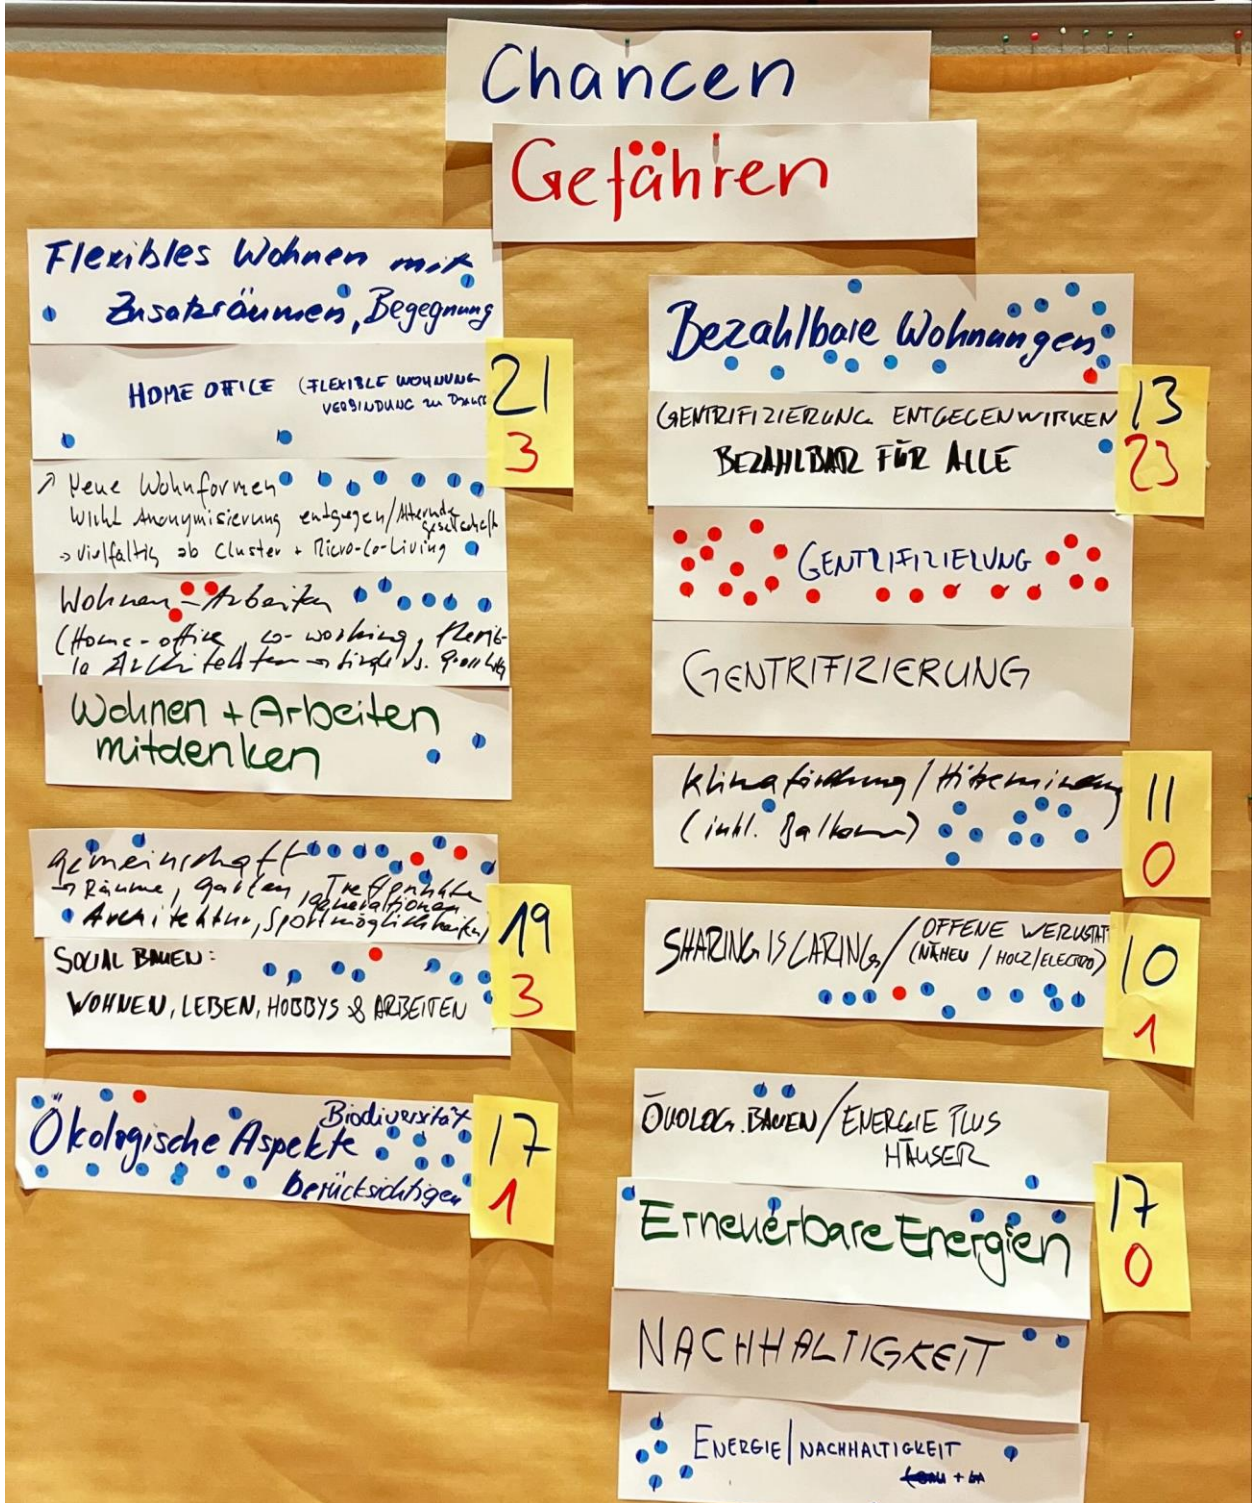 Chancen
Gefähren
Flexibles Wohnen mit
Zusatzräumen, Begegnung
HOME OFFICE (FLEXIBLE WOHNUNG
VERBINDUNG ZU
21
3
↗ Neue Wohnformen
wirkt Anonymisierung entgegen/Alternde
gesellschaft
→ vielfältig ob Cluster + Micro-Co-Living
Wohnen - Arbeiten
(Home-office, co-working, flexib-
le Architektur → single vs.
Wohnen + Arbeiten
mitdenken
gemeinschaft
→ Räume, Garten, Treffpunkte
generationen
Architektur, Sportmöglichkeiten)
SOCIAL BAUEN:
WOHNEN, LEBEN, HOBBYS & ARBEITEN
19
3
Ökologische Aspekte
Biodiversität
berücksichtigen
17
1
Bezahlbare Wohnungen
GENTRIFIZIERUNG ENTGEGENWIRKEN
BEZAHLBAR FÜR ALLE
13
23
GENTRIFIZIERUNG
GENTRIFIZIERUNG
Klimaförderung/Hitzeminderung
(inkl. Balkone)
11
0
SHARING IS CARING / OFFENE WERKSTATT
(NÄHEN / HOLZ/ELECTRO)
10
1
ÖKOLOG. BAUEN/ENERGIE PLUS
HÄUSER
Erneuerbare Energien
17
0
NACHHALTIGKEIT
ENERGIE/NACHHALTIGKEIT